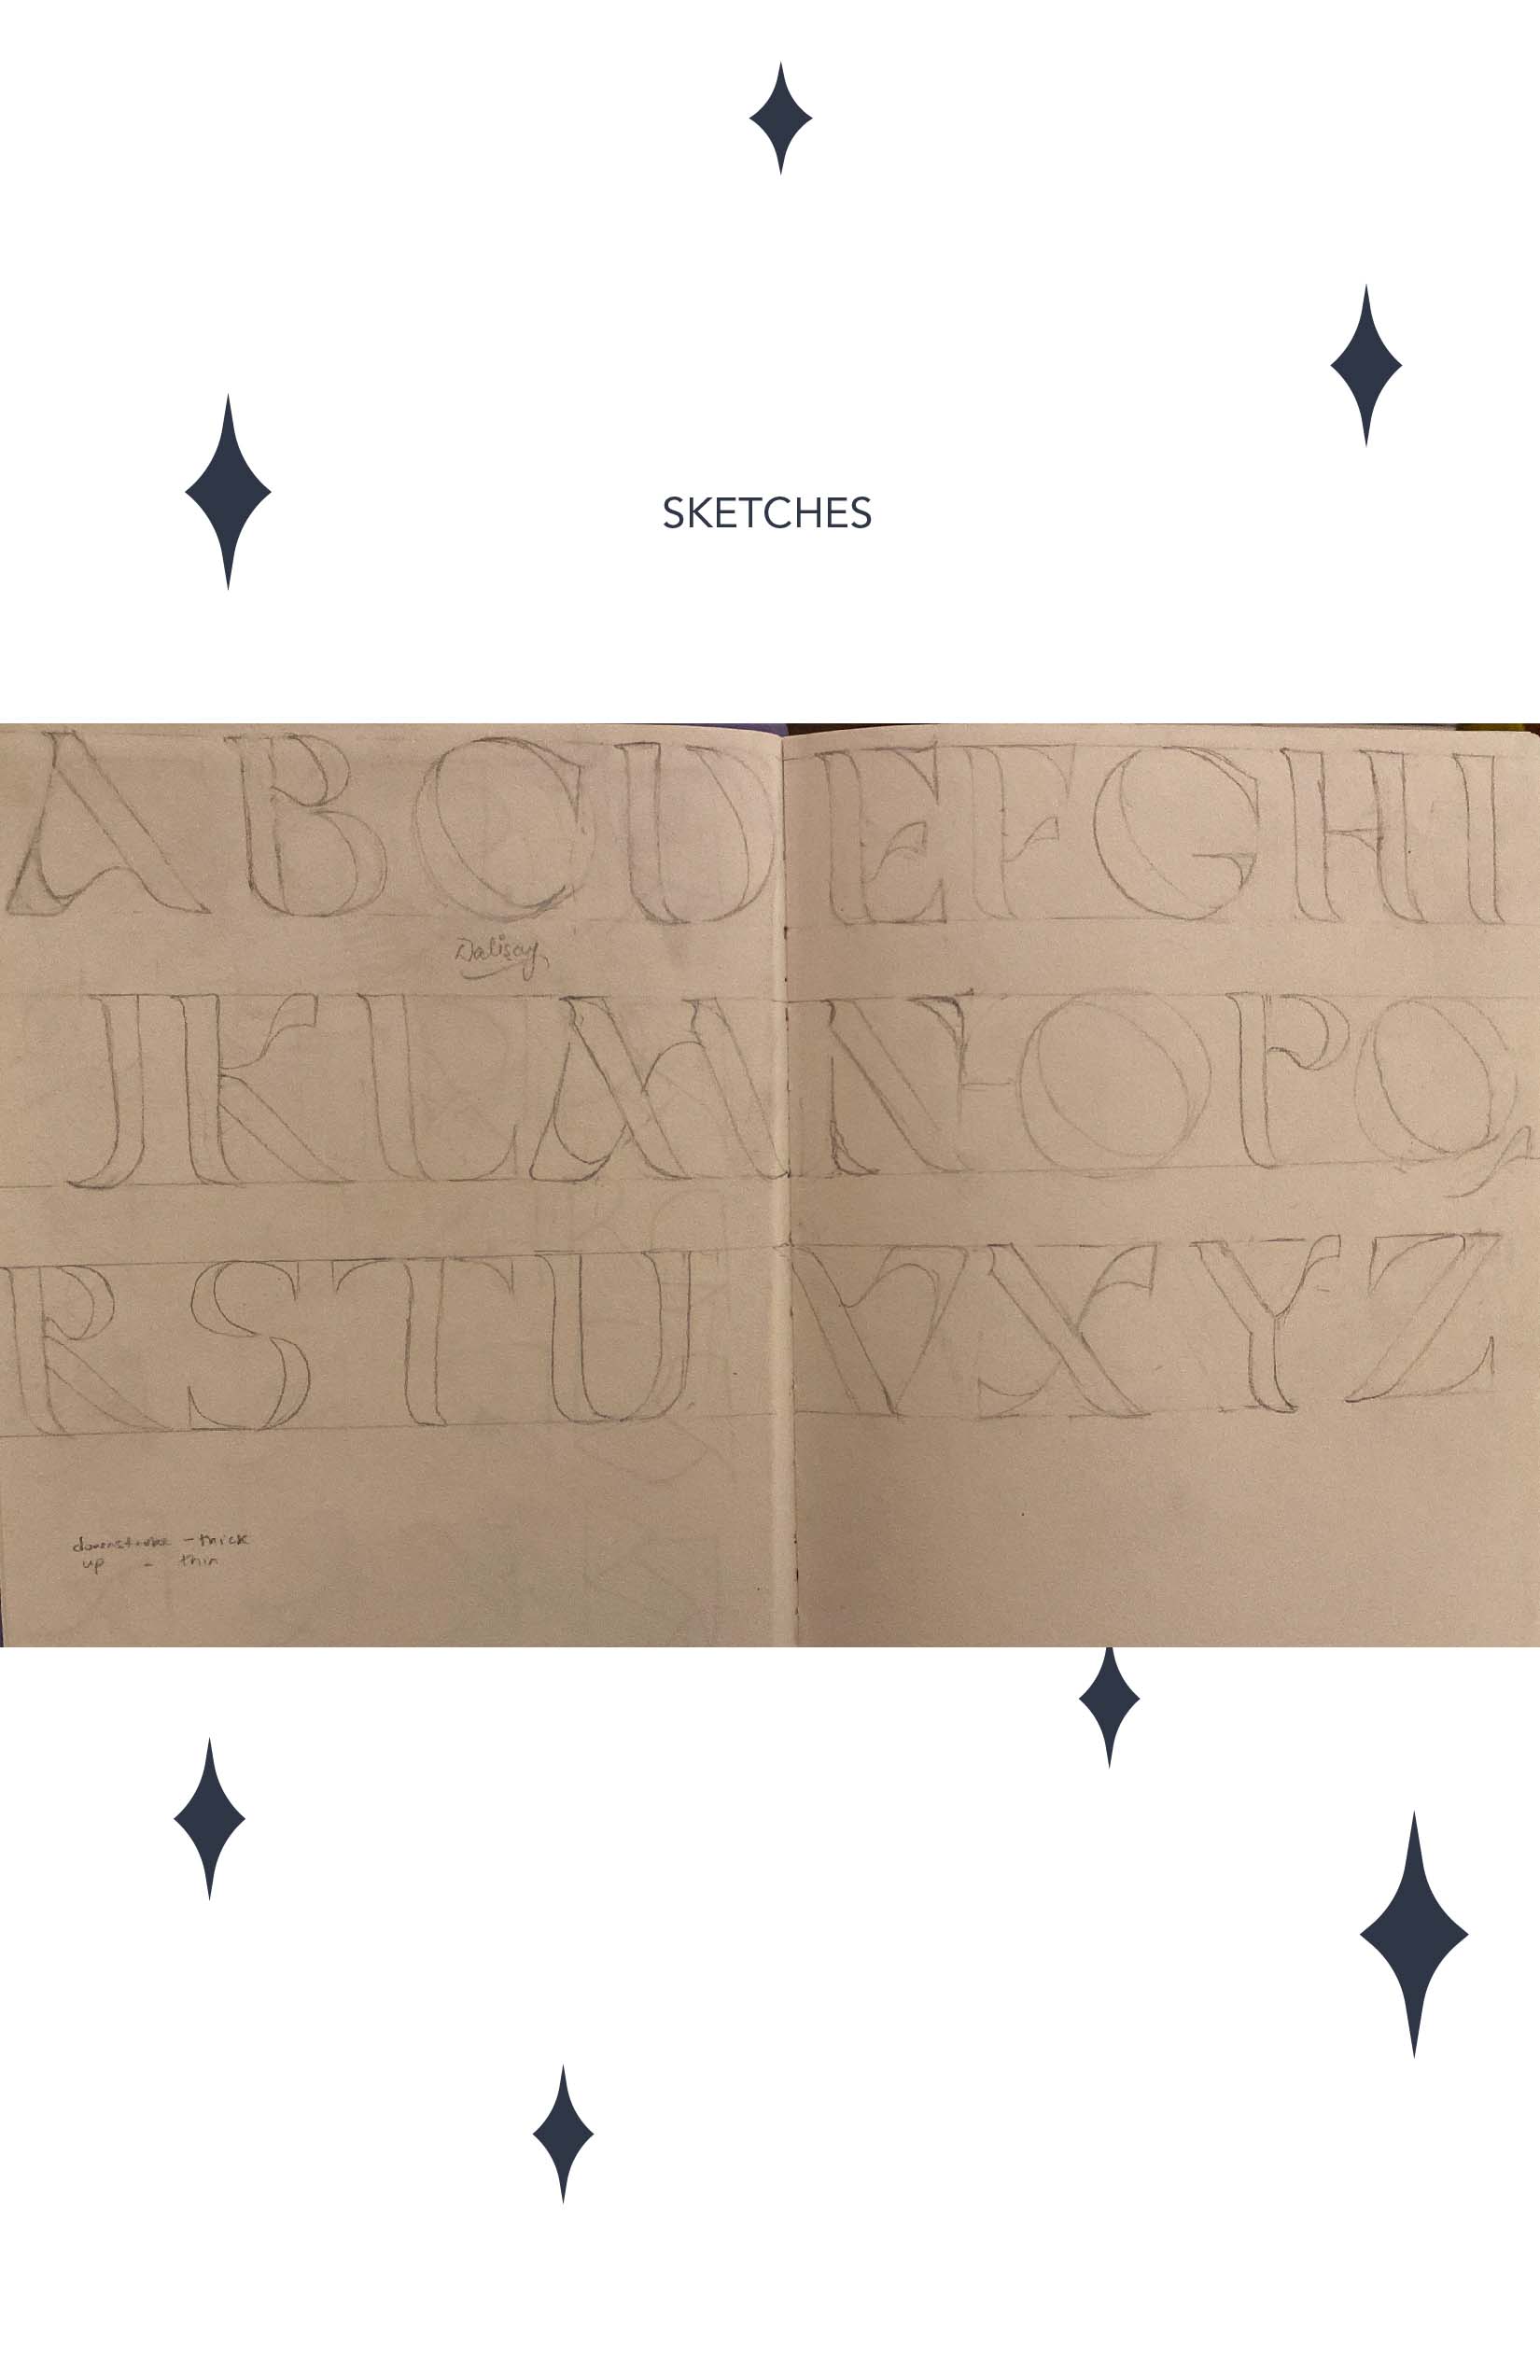 SKETCHES
ABCDEFGHI
Dalisay
JKLMNOPQ
RSTUVXYZ
downstroke - thick
up - thin